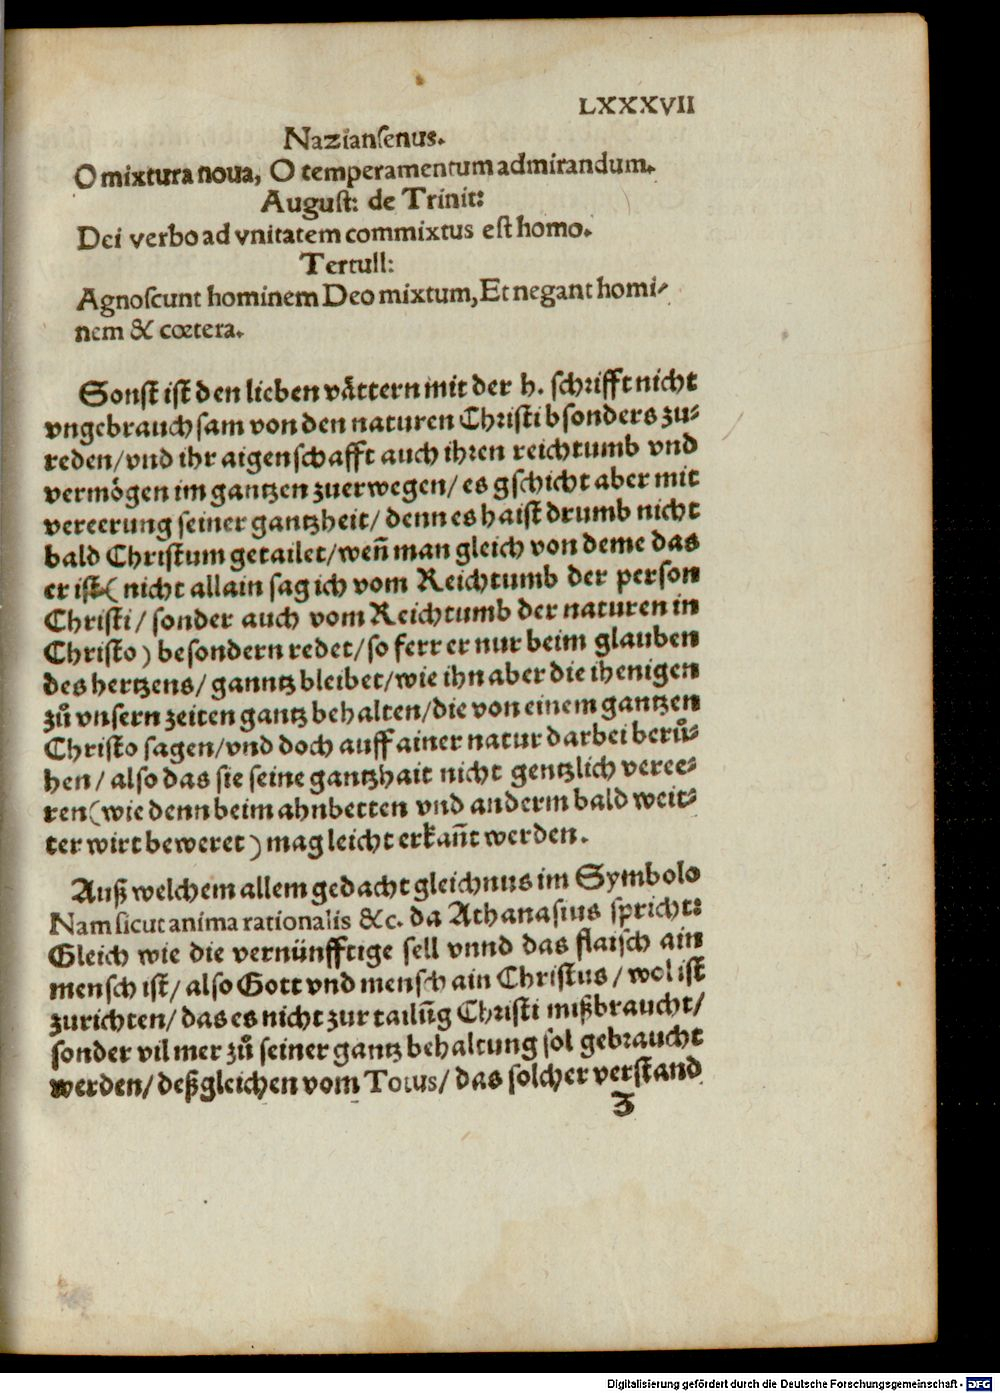 LXXXVII
Nazianſenus.
O mixtura noua, O temperamentum admirandum.
Auguſt: de Trinit:
Dei verbo ad vnitatem commixtus eſt homo.
Tertull:
Agnoſcunt hominem Deo mixtum, Et negant homi-
nem & cœtera.
Sonſt iſt den lieben våttern mit der h. ſchrifft nicht
vngebrauchſam von den naturen Chriſti bſonders zu-
reden/ vnd ihr aigenſchafft auch ihren reichtumb vnd
vermögen im gantzen zuerwegen/ es gſchicht aber mit
vereerung ſeiner gantzheit/ denn es haiſt drumb nicht
bald Chriſtum getailet/ weñ man gleich von deme das
er iſt ( nicht allain ſag ich vom Reichtumb der perſon
Chriſti/ ſonder auch vom Reichtumb der naturen in
Chriſto ) beſondern redet/ ſo ferr er nur beim glauben
des hertzens/ ganntz bleibet/ wie ihn aber die ihenigen
zů vnſern zeiten gantz behalten/ die von einem gantzen
Chriſto ſagen/ vnd doch auff ainer natur darbei berů-
hen/ alſo das ſie ſeine gantzhait nicht gentzlich veree-
ren ( wie denn beim ahnbetten vnd anderm bald weit-
ter wirt beweret ) mag leicht erkañt werden.
Auß welchem allem gedacht gleichnus im Symbolo
Nam ſicut anima rationalis &c. da Athanaſius ſpricht:
Gleich wie die vernünfftige ſell vnnd das flaiſch ain
menſch iſt/ alſo Gott vnd menſch ain Chriſtus/ wol iſt
zurichten/ das es nicht zur tailũg Chriſti mißbraucht/
ſonder vil mer zů ſeiner gantz behaltung ſol gebraucht
werden/ deßgleichen vom Totus/ das ſolcher verſtand
Z
Digitalisierung gefördert durch die Deutsche Forschungsgemeinschaft - DFG